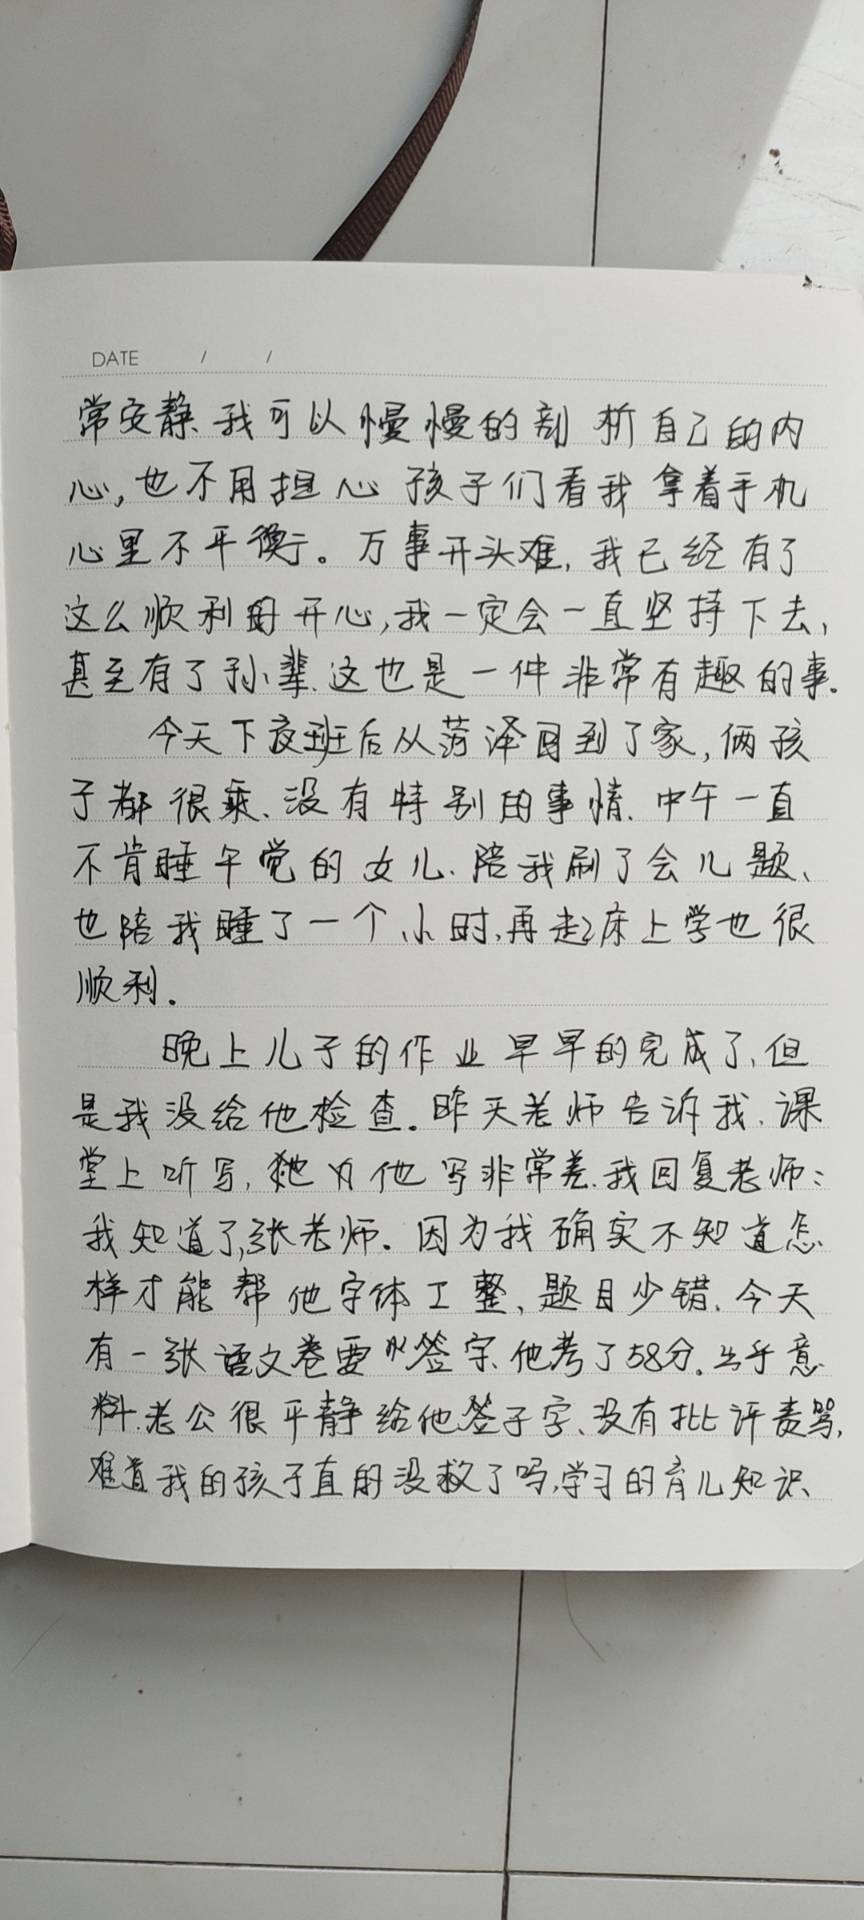 DATE / /
常安静、我可以慢慢的剖析自己的内
心,也不用担心孩子们看我拿着手机
心里不平衡。万事开头难,我已经有了
这么顺利的开心,我一定会一直坚持下去,
甚至有了孙辈、这也是一件非常有趣的事。
今天下夜班后从菏泽回到了家,俩孩
子都很乖、没有特别的事情、中午一直
不肯睡午觉的女儿、陪我刷了会儿题、
也陪我睡了一个小时,再起床上学也很
顺利。
晚上儿子的作业早早的完成了,但
是我没给他检查。昨天老师告诉我、课
堂上听写,他写非常差、我回复老师:
我知道了,张老师。因为我确实不知道怎
样才能帮他字体工整、题目少错、今天
有一张语文卷要签字、他考了58分。出乎意
料、老公很平静给他签子字、没有批评责骂,
难道我的孩子真的没救了吗,学习的育儿知识、